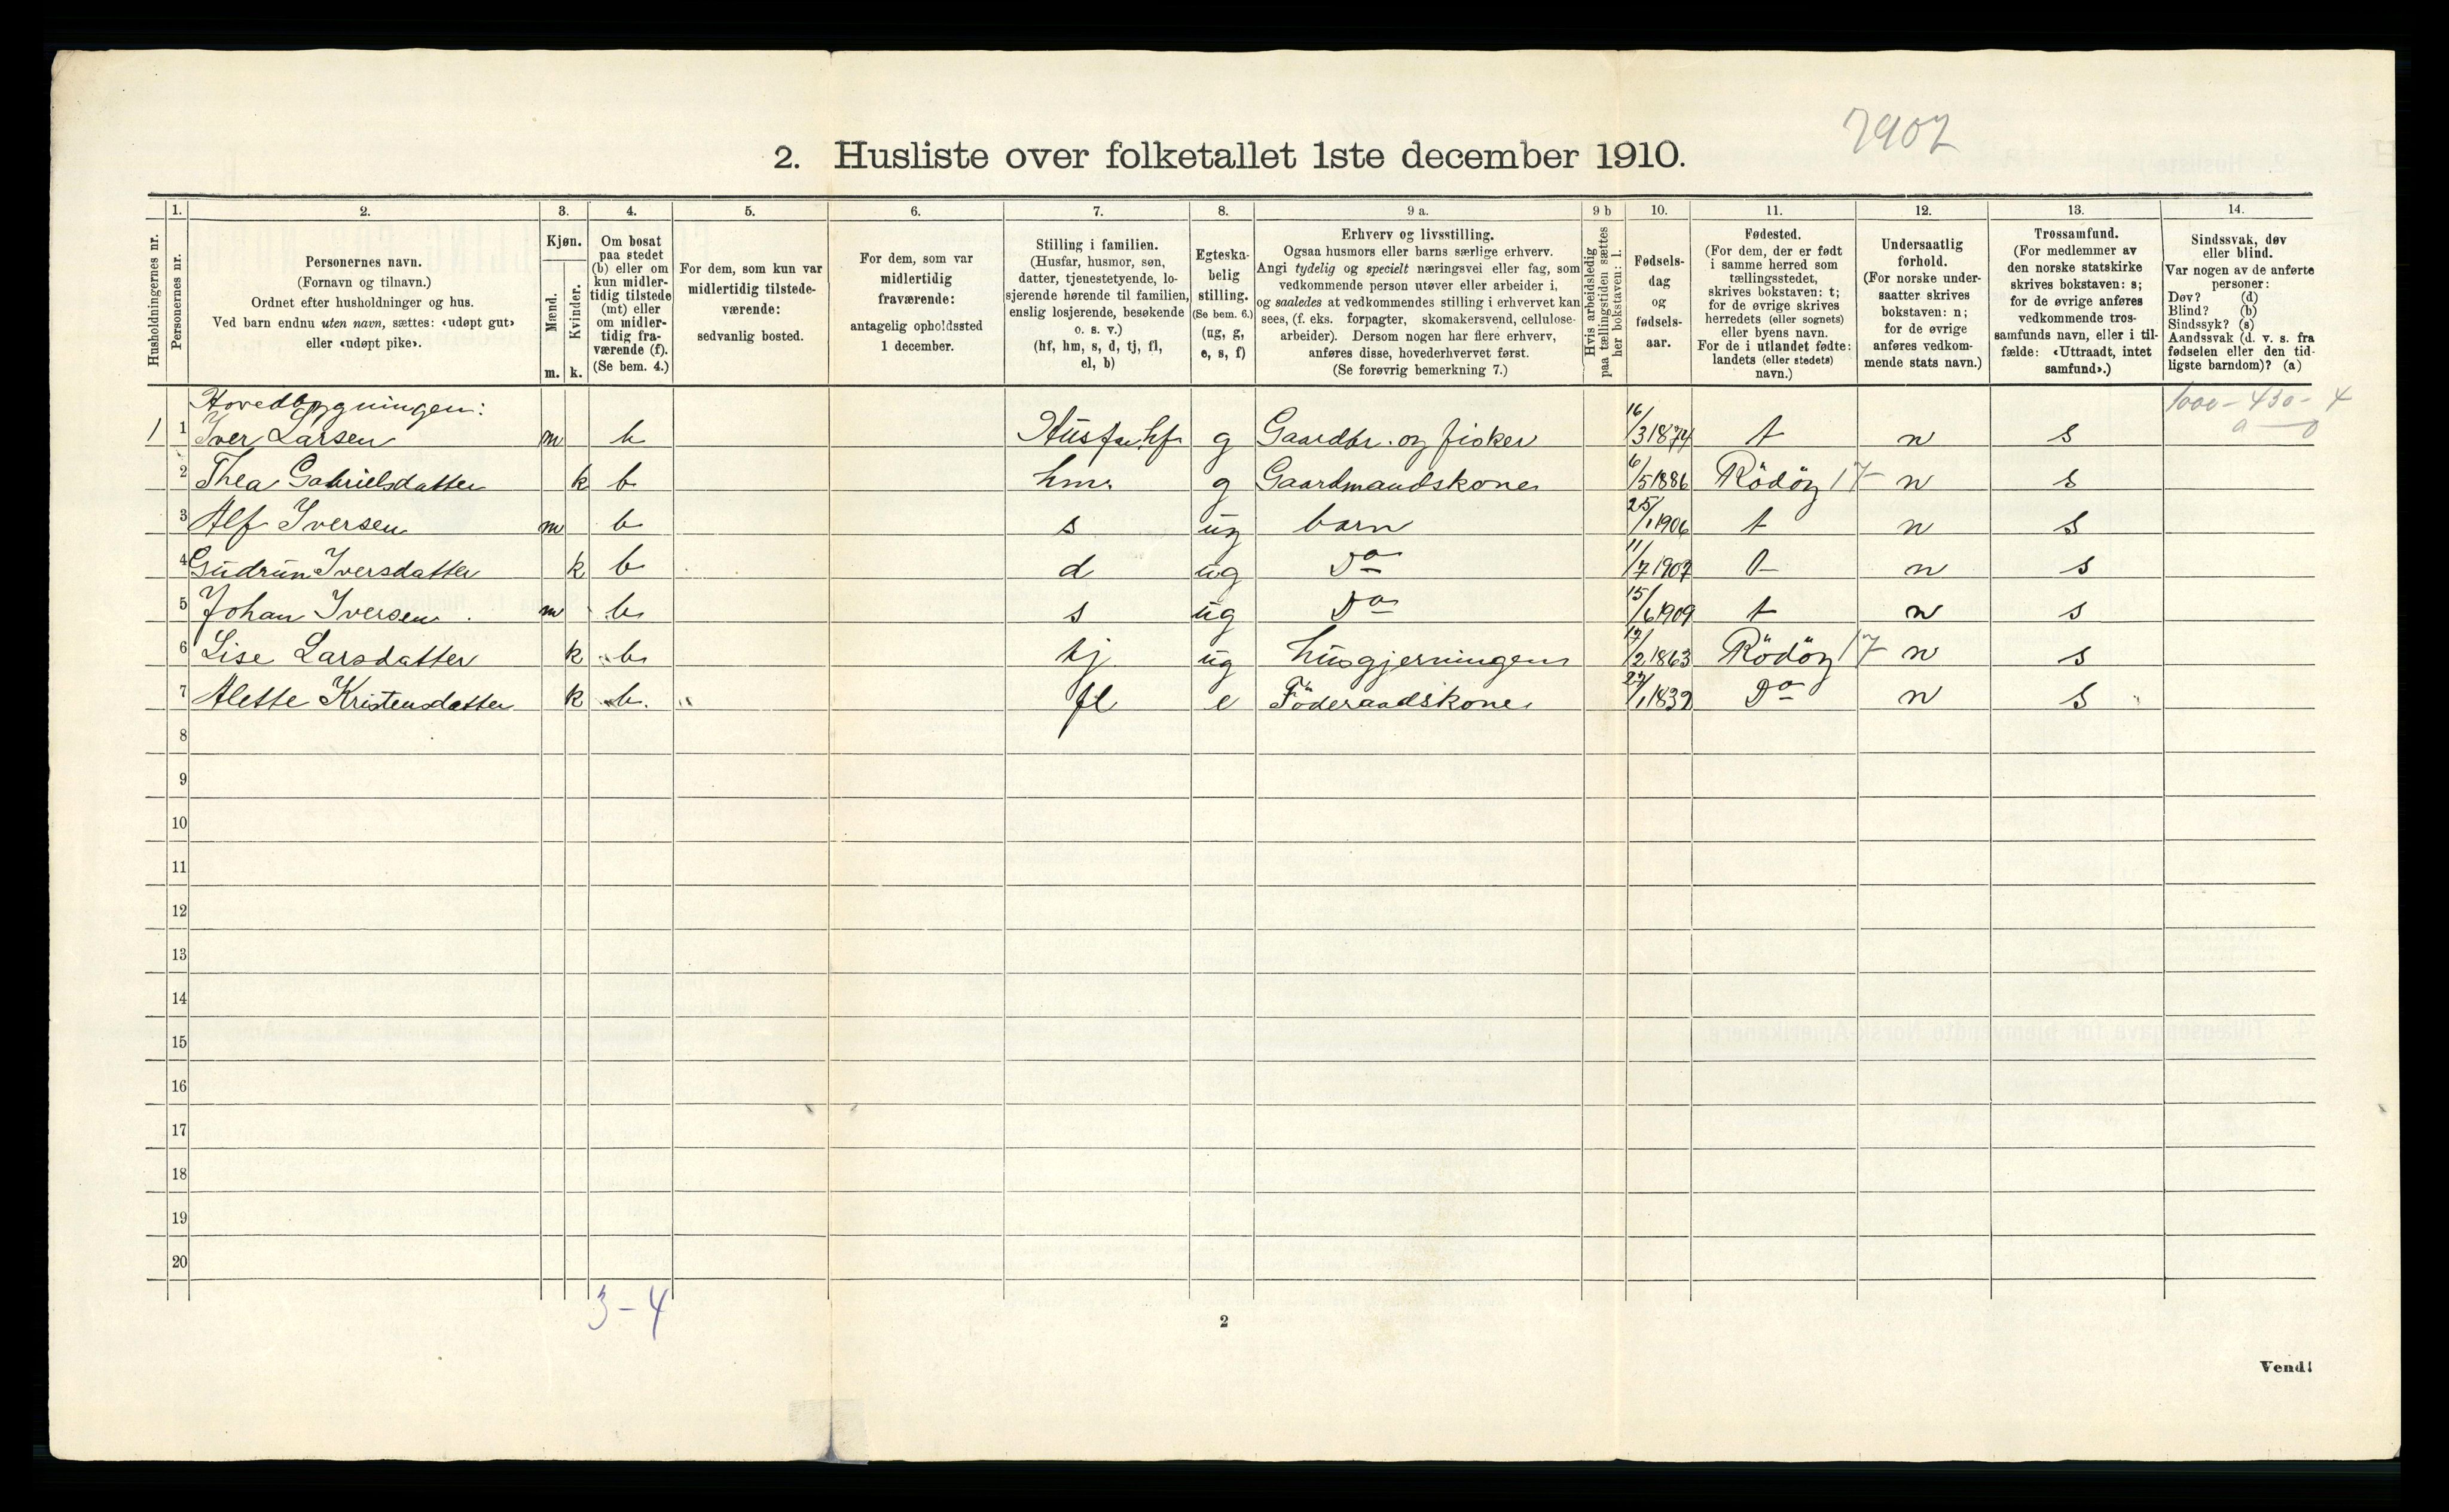 7907
2. Husliste over folketallet 1ste december 1910.
Husholdningernes nr.
1.
Personernes nr.
2.
Personernes navn.
(Fornavn og tilnavn.)
Ordnet efter husholdninger og hus.
Ved barn endnu uten navn, sættes: «udøpt gut»
eller «udøpt pike».
3.
Kjøn.
Mænd.
Kvinder.
m. k.
4.
Om bosat
paa stedet
(b) eller om
kun midler-
tidig tilstede
(mt) eller
om midler-
tidig fra-
værende (f).
(Se bem. 4.)
5.
For dem, som kun var
midlertidig tilstede-
værende:
sedvanlig bosted.
6.
For dem, som var
midlertidig
fraværende:
antagelig opholdssted
1 december.
7.
Stilling i familien.
(Husfar, husmor, søn,
datter, tjenestetyende, lo-
sjerende hørende til familien,
enslig losjerende, besøkende
o. s. v.)
(hf, hm, s, d, tj, fl,
el, b)
8.
Egteska-
belig
stilling.
(Se bem. 6.)
(ug, g,
e, s, f)
9 a.
Erhverv og livsstilling.
Ogsaa husmors eller barns særlige erhverv.
Angi tydelig og specielt næringsvei eller fag, som
vedkommende person utøver eller arbeider i,
og saaledes at vedkommendes stilling i erhvervet kan
sees, (f. eks. forpagter, skomakersvend, cellulose-
arbeider). Dersom nogen har flere erhverv,
anføres disse, hovederhvervet først.
(Se forøvrig bemerkning 7.)
9 b
Hvis arbeidsledig
paa tællingstiden sættes
her bokstaven: l.
10.
Fødsels-
dag
og
fødsels-
aar.
11.
Fødested.
(For dem, der er født
i samme herred som
tællingsstedet,
skrives bokstaven: t;
for de øvrige skrives
herredets (eller sognets)
eller byens navn.
For de i utlandet fødte:
landets (eller stedets)
navn.)
12.
Undersaatlig
forhold.
(For norske under-
saatter skrives
bokstaven: n;
for de øvrige
anføres vedkom-
mende stats navn.)
13.
Trossamfund.
(For medlemmer av
den norske statskirke
skrives bokstaven: s;
for de øvrige anføres
vedkommende tros-
samfunds navn, eller i til-
fælde: «Uttraadt, intet
samfund».)
14.
Sindssvak, døv
eller blind.
Var nogen av de anførte
personer:
Døv? (d)
Blind? (b)
Sindssyk? (s)
Aandssvak (d. v. s. fra
fødselen eller den tid-
ligste barndom)? (a)
Hovedbygningen:
1000 - 430 - 4
a — 0
1 1 Iver Larsen m b hf g Gaardbr. og fisker 16/3 1874 t n s
2 Thea Gabrielsdatter k b hm g Gaardmandskone 6/5 1886 Rödöy 17 n s
3 Alf Iversen m b s ug barn 25/1 1906 t n s
4 Gudrun Iversdatter k b d ug Do 11/7 1907 t n s
5 Johan Iversen m b s ug Do 15/6 1909 t n s
6 Lise Larsdatter k b tj ug husgjerningen 17/2 1863 Rödöy 17 n s
7 Alette Kristensdatter k b fl e Föderaadskone 27/1 1832 Do n s
8
9
10
11
12
13
14
15
16
17
18
19
20
3-4
2
Vend!